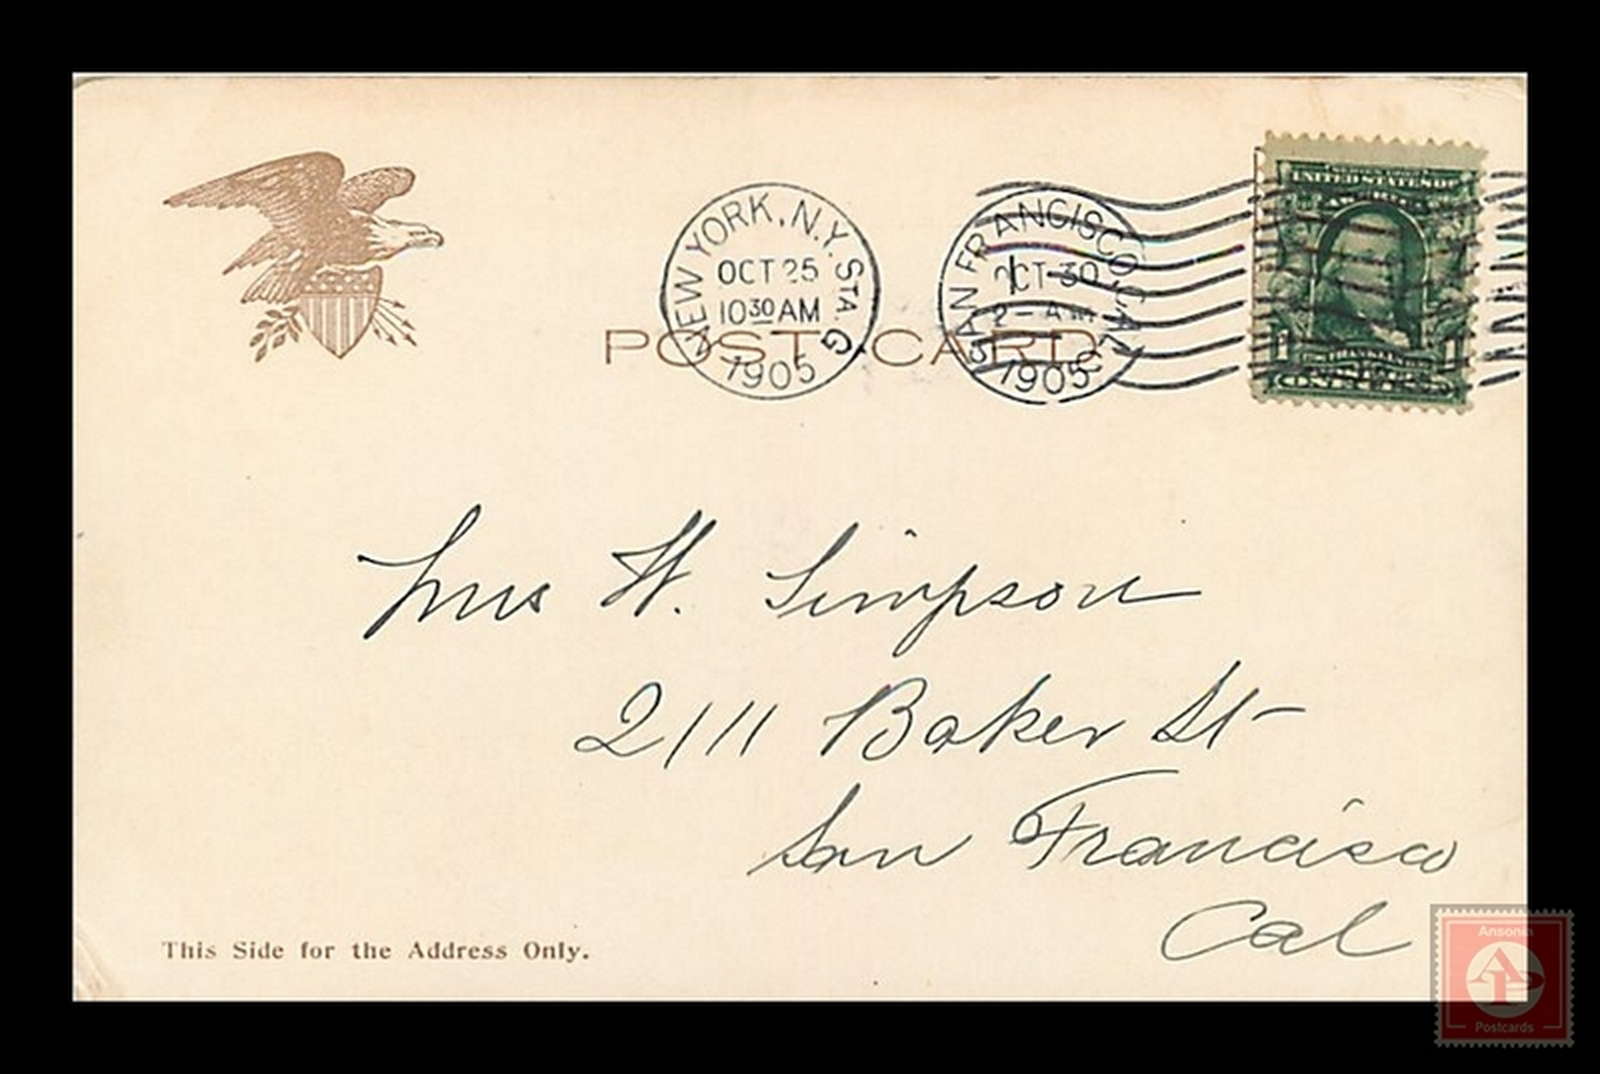 NEW YORK, N.Y. STA. G
OCT 25
10 30 AM
1905
SAN FRANCISCO, CAL.
OCT 30
2 - AM
1905
UNITED STATES OF
AMERICA
1 1
FRANKLIN
ONE
POST CARD
Mrs W. Simpson
2111 Baker St
San Francisco
Cal
This Side for the Address Only.
Ansonia
AP
Postcards